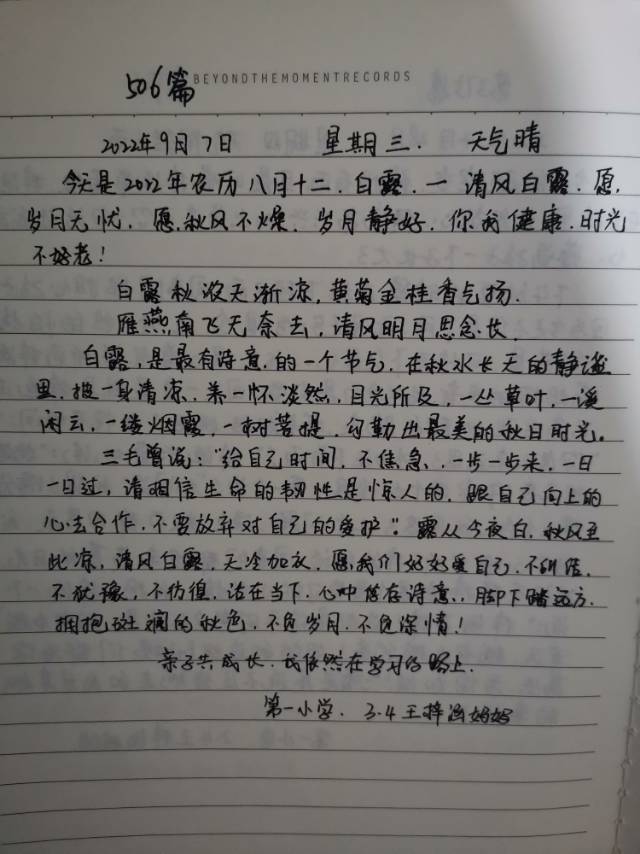 506篇 BEYONDTHEMOMENTRECORDS
2022年9月7日 星期三. 天气晴
今天是2022年农历八月十二.白露.一 清风白露.愿,
岁月无忧.愿,秋风不燥.岁月静好.你我健康.时光
不好老!
白露秋浓天渐凉,黄菊金桂香气扬.
雁燕南飞无奈去,清风明月思念长.
白露,是最有诗意.的一个节气.在秋水长天的静谧
里.披一身清凉.养一怀淡然,目光所及,一丛草叶,一溪
闲云,一缕烟霞,一树菩提,勾勒出最美的秋日时光。
三毛曾说:"给自己时间.不焦急,一步一步来,一日
一日过,请相信生命的韧性是惊人的.跟自己向上的
心去合作.不要放弃对自己的爱护".露从今夜白.秋风至
此凉,清风白露.天冷加衣.愿,我们好好爱自己.不纠结.
不犹豫,不彷徨,活在当下.心中依存诗意,脚下踏远方.
拥抱斑斓的秋色.不负岁月.不负深情!
亲子共成长.我依然在学习的路上.
第一小学. 3.4王梓涵妈妈